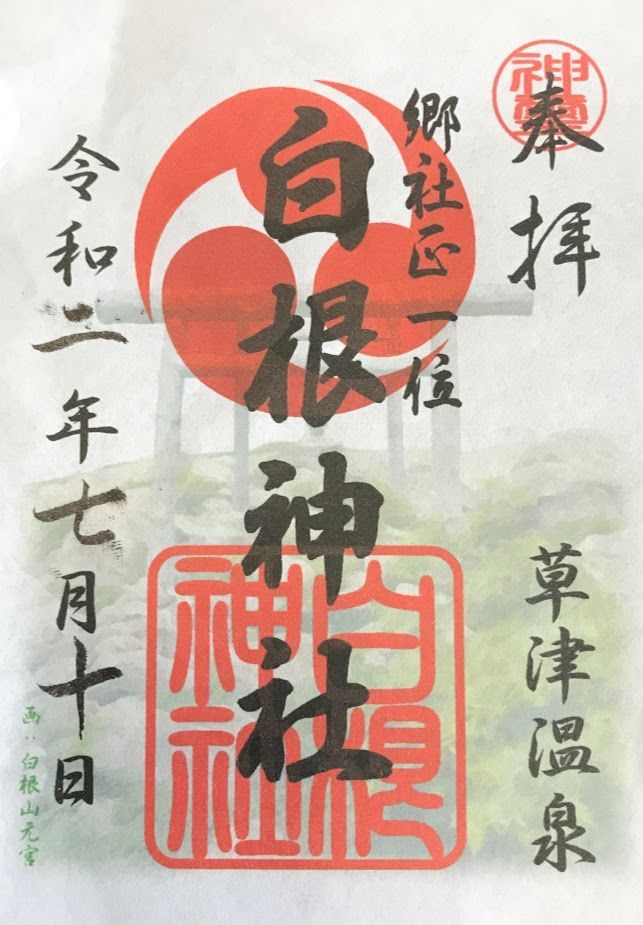 奉拝
草津温泉
郷社正一位
白根神社
白根神社
令和二年七月十日
画:白根山元宮